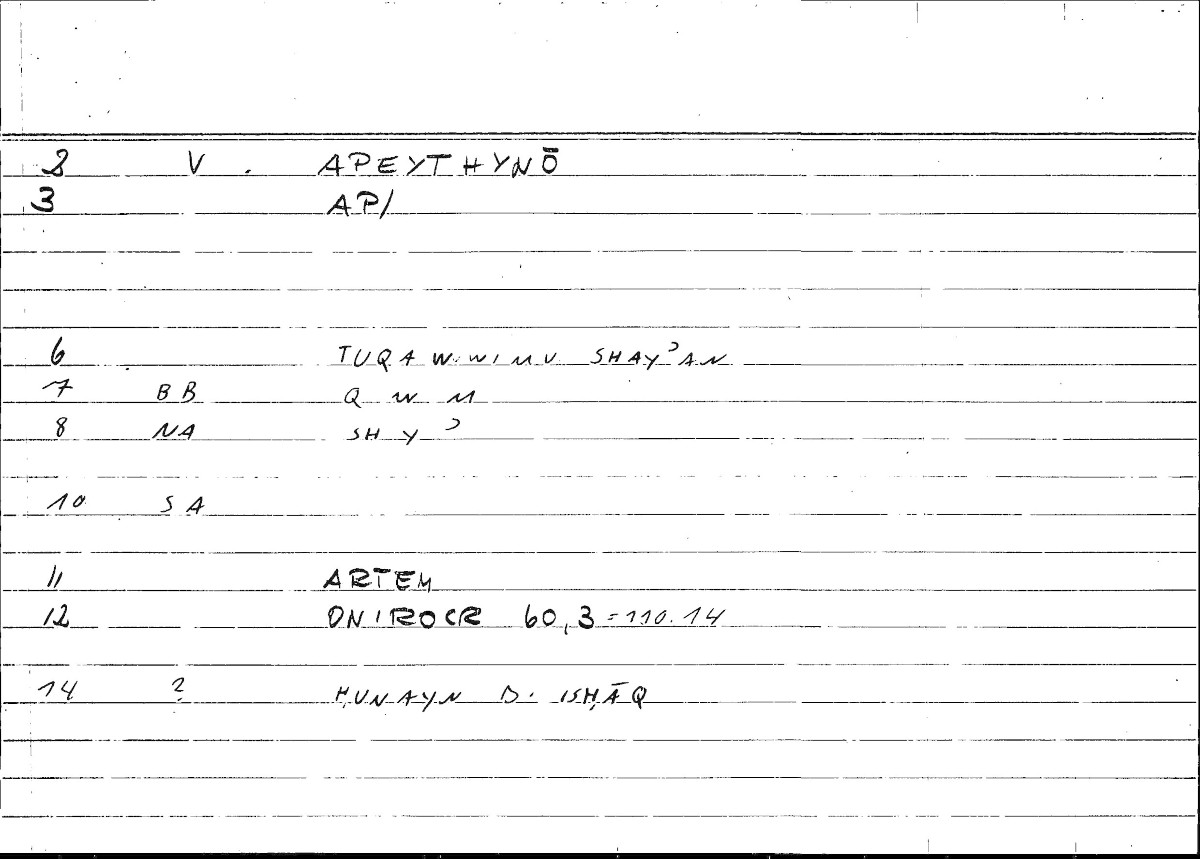 2 V . APEYTHYNŌ
3 AP/
6 TUQAWWIMU SHAYʾAN
7 BB QWM
8 NA SHYʾ
10 SA
11 ARTEM
12 ONIROCR 60,3=110.14
14 ? ḤUNAYN B. ISḤĀQ